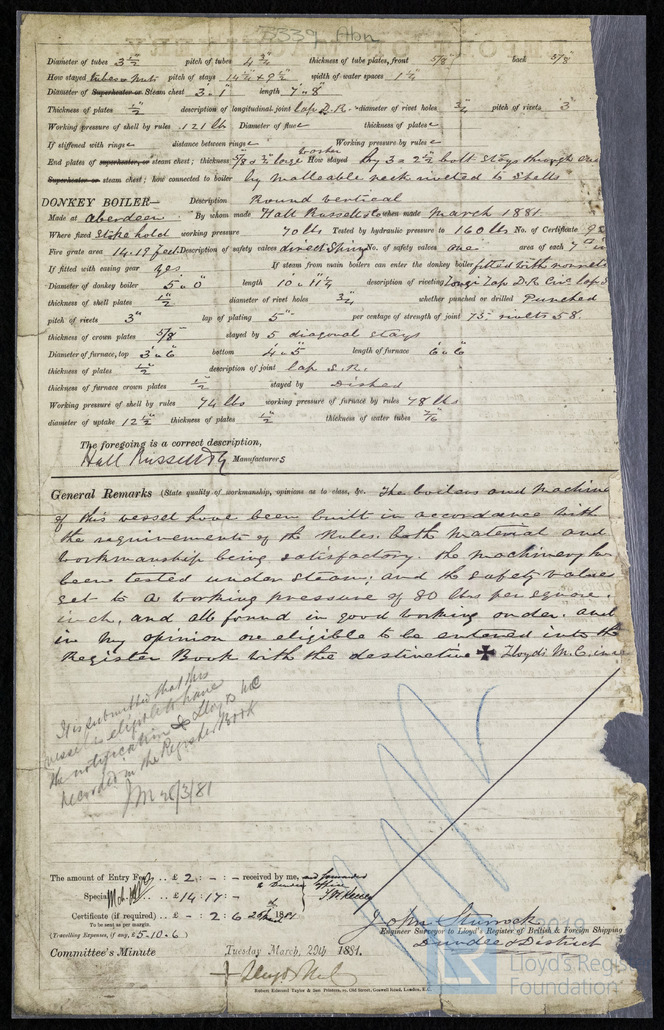 3339 Abn
Diameter of tubes 3 1/2" pitch of tubes 4 3/4" thickness of tube plates, front 5/8" back 5/8"
How stayed tubes & nuts pitch of stays 14 1/4 x 9 1/2" width of water spaces 1 1/4"
Diameter of Superheater or Steam chest 3' 1" length 7' 8"
Thickness of plates 1/2" description of longitudinal joint lap D.R. diameter of rivet holes 3/4" pitch of rivets 3"
Working pressure of shell by rules 121 lb Diameter of flue thickness of plates
If stiffened with rings distance between rings Working pressure by rules
End plates of superheater, or steam chest; thickness 5/8 & 1/2" large washer How stayed by 3 = 2 1/2 bolt stays through
Superheater or steam chest; how connected to boiler by malleable neck riveted to shells
DONKEY BOILER— Description Round vertical
Made at aberdeen By whom made Hall Russell & Co when made March 1881.
Where fixed Stoke hold working pressure 70 lbs Tested by hydraulic pressure to 160 lbs No. of Certificate
Fire grate area 14.19 feet Description of safety valves direct spring No. of safety valves one area of each 7
If fitted with easing gear yes If steam from main boilers can enter the donkey boiler fitted with
Diameter of donkey boiler 5' 0" length 10' 11 1/4" description of riveting Longi Lap D.R. Circ lap
thickness of shell plates 1/2" diameter of rivet holes 3/4" whether punched or drilled Punched
pitch of rivets 3" lap of plating 5" per centage of strength of joint 75. rivets 58.
thickness of crown plates 5/8" stayed by 5 diagonal stays
Diameter of furnace, top 3' 6" bottom 4' 5" length of furnace 6' 6"
thickness of plates 1/2" description of joint lap S.R.
thickness of furnace crown plates 1/2" stayed by Dished
Working pressure of shell by rules 74 lbs working pressure of furnace by rules 78 lbs
diameter of uptake 12 1/2" thickness of plates 1/2" thickness of water tubes 7/16"
The foregoing is a correct description,
Hall Russell & Co Manufacturers
General Remarks (State quality of workmanship, opinions as to class, &c. The boilers and machin
of this vessel have been built in accordance with
the requirements of the Rules. both material and
workmanship being satisfactory. the machinery ha
been tested under steam; and the safety valves
set to a working pressure of 80 lbs per square.
inch, and all found in good working order. and
in my opinion are eligible to be entered into the
Register Book with the destinctive ✠ Lloyds M.C. in
It is submitted that this
vessel is eligible to have
the notification ✠ Lloyds MC
recorded in the Register Book
JM 26/3/81
The amount of Entry Fee .. £ 2 : - : - received by me, and forwarded
Special .. £ 14 : 17 : -
Certificate (if required) .. £ - : 2 : 6 1881
To be sent as per margin.
(Travelling Expenses, if any, £ 5-10-6)
John Sturrock
Engineer Surveyor to Lloyd's Register of British & Foreign Shipping
Dundee District
Committee's Minute Tuesday March, 29th 1881.
+ Lloyds M.C.
Robert Edmund Taylor & Son Printers, 19, Old Street, Goswell Road, London, E.C.
2019
LR
Lloyd's Regis
Foundation